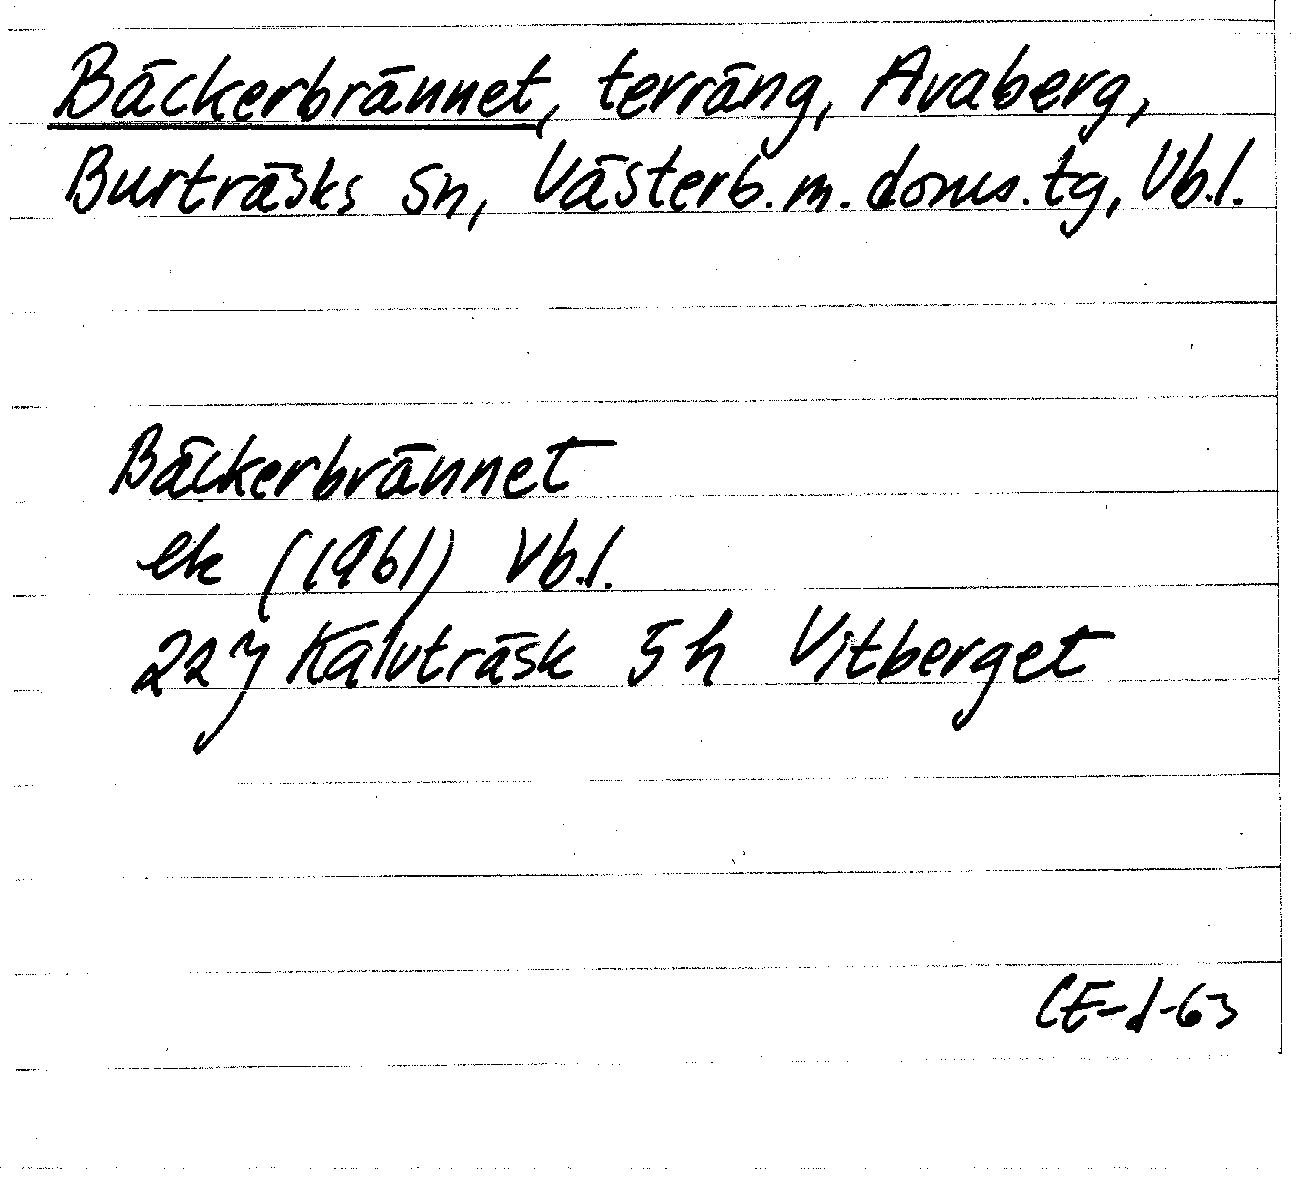 Bäckerbrännet, terräng, Avaberg,
Burträsks sn, Västerb. m. doms. tg, Vb.l.
Bäckerbrännet
ek (1961) Vb.l.
22 J Kalvträsk 5 h Vitberget
CE-d-63